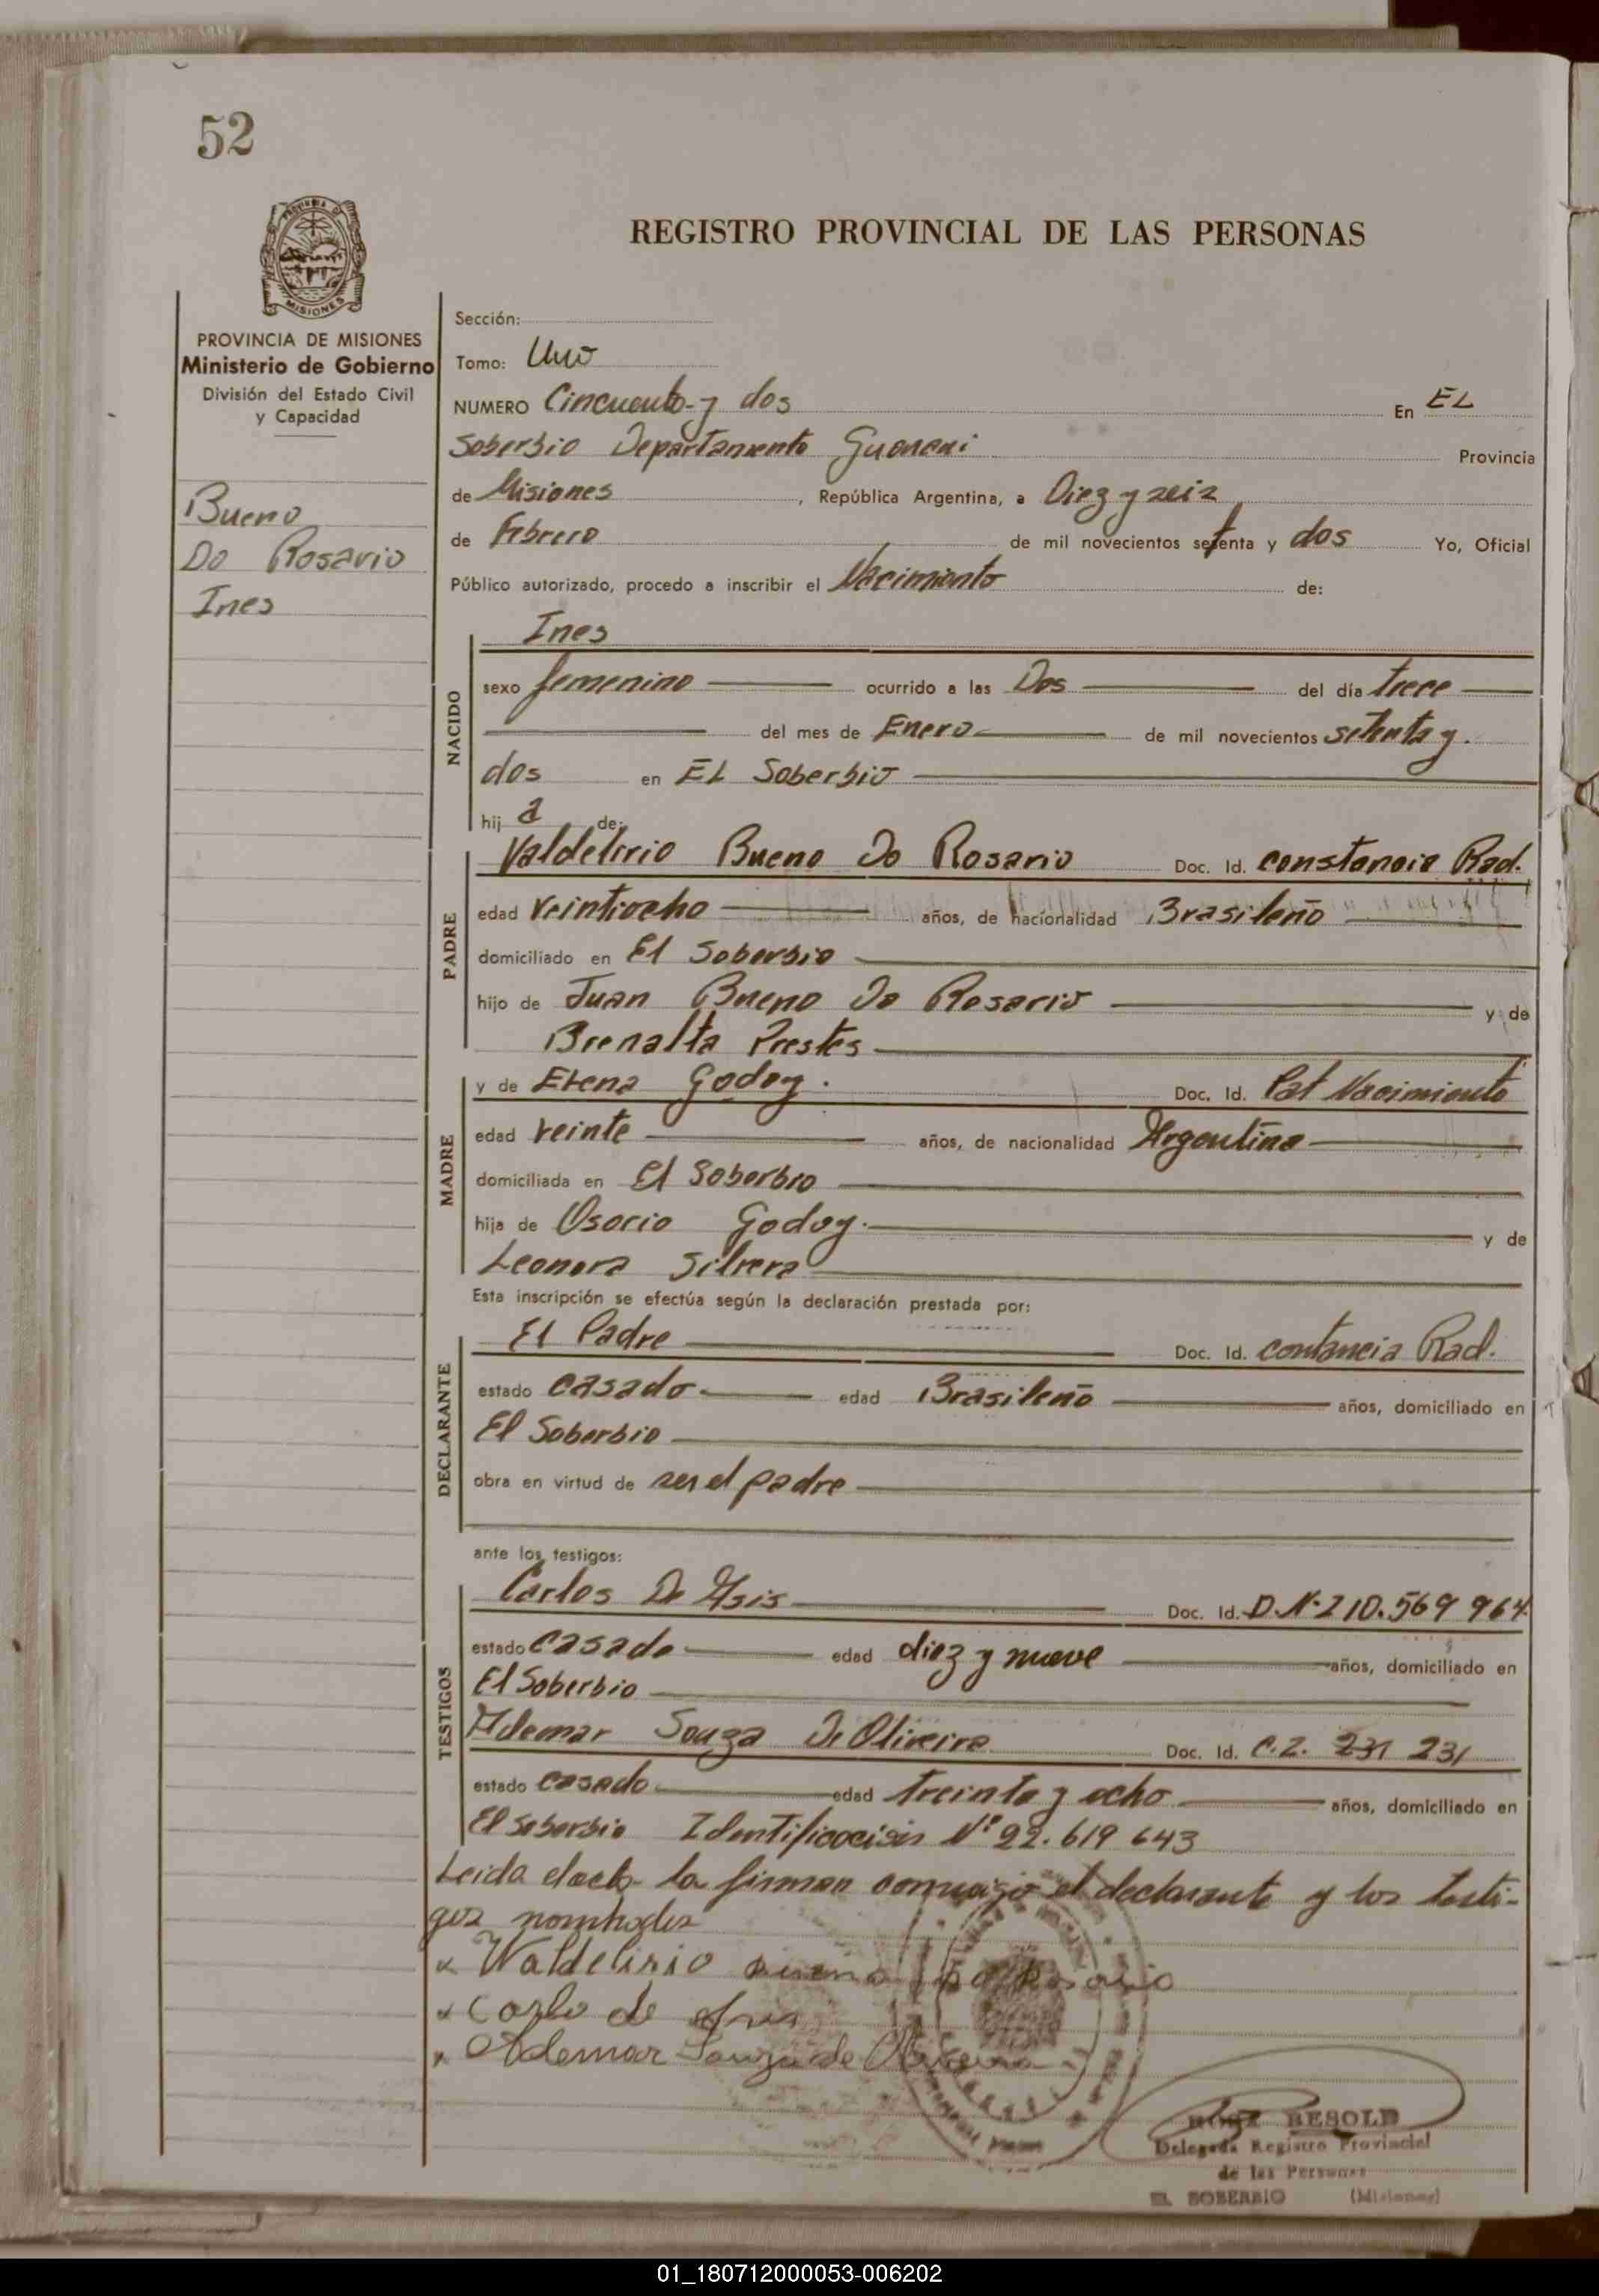 52
PROVINCIA DE MISIONES
REGISTRO PROVINCIAL DE LAS PERSONAS
PROVINCIA DE MISIONES
Ministerio de Gobierno
División del Estado Civil
y Capacidad
Bueno
Do Rosario
Ines
Sección:
Tomo: Uno
NUMERO Cincuenta y dos En EL
Soberbio Departamento Guarani Provincia
de Misiones, República Argentina, a Diez y seis
de Febrero de mil novecientos setenta y dos Yo, Oficial
Público autorizado, procedo a inscribir el Nacimiento de:
NACIDO
Ines
sexo femenino ocurrido a las Dos del día trece
del mes de Enero de mil novecientos setenta y
dos en EL Soberbio
hij a de:
PADRE
Valdelirio Bueno Do Rosario Doc. Id. constancia Rad.
edad veintiocho años, de nacionalidad Brasileño
domiciliado en El Soberbio
hijo de Juan Bueno Do Rosario y de
Brenalta Prestes
MADRE
y de Elena Godoy. Doc. Id. Pat Nacimiento
edad veinte años, de nacionalidad Argentina
domiciliada en El Soberbio
hija de Osorio Godoy. y de
Leonora Silvera
Esta inscripción se efectúa según la declaración prestada por:
DECLARANTE
El Padre Doc. Id. contancia Rad.
estado casado edad Brasileño años, domiciliado en
El Soberbio
obra en virtud de ser el padre
ante los testigos:
TESTIGOS
Carlos De Asis Doc. Id. D.N.I 10.569 964
estado casado edad diez y nueve años, domiciliado en
El Soberbio
Ademar Souza De Oliveira Doc. Id. C.I. 231 231
estado casado edad treinta y ocho años, domiciliado en
El Soberbio Identificación Nº 22.619 643
Leida el acta la firman conmigo el declarante y los testi-
gos nombrados
x Waldelirio Bueno do Rosario
x Carlo de Asis
x Ademar Souza de Oliveira
ROSA BESOLD
Delegada Registro Provincial
de las Personas
EL SOBERBIO (Misiones)
01_180712000053-006202